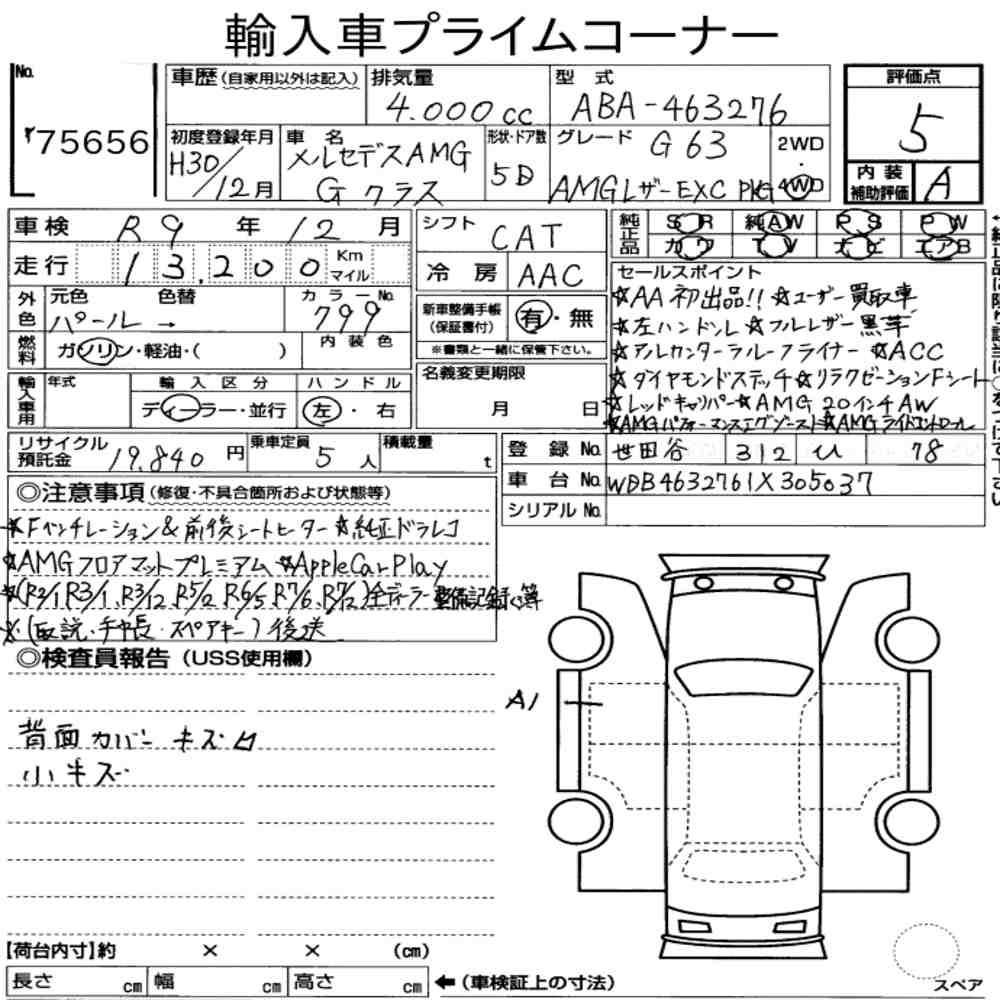 輸入車プライムコーナー
No. 75656
車歴(自家用以外は記入) 排気量 4.000cc 型式 ABA-463276 評価点 5
初度登録年月 H30/12月 車名 メルセデスAMG Gクラス 形状・ドア数 5D グレード G63 AMGレザーEXC PKG 2WD 4WD 内装補助評価 A
車検 R9年12月 シフト CAT 純正品 SR 純AW PS PW
カワ TV ナビ エアB
走行 13,200 Km マイル 冷房 AAC
外色 元色 パール → 色替 カラーNo. 799
内装色
燃料 ガソリン・軽油・( )
新車整備手帳(保証書付) 有・無
※書類と一緒に保管下さい。
名義変更期限 月 日
輸入車用 年式 輸入区分 ディーラー・並行 ハンドル 左・右
リサイクル預託金 19.840円 乗車定員 5人 積載量 t
セールスポイント
☆AA初出品!! ☆ユーザー買取車
☆左ハンドル ☆フルレザー黒革
☆アルカンターラルーフライナー ☆ACC
☆ダイヤモンドステッチ ☆リラクゼーションFシート
☆レッドキャリパー ☆AMG 20インチAW
☆AMGパフォーマンスエグゾースト ☆AMGライドコントロール
登録No. 世田谷 312 78
車台No. WDB4632761X305037
シリアルNo.
◎注意事項(修復・不具合箇所および状態等)
☆Fベンチレーション&前後シートヒーター ☆純正ドラレコ
☆AMGフロアマットプレミアム ☆AppleCarPlay
☆(R2/1,R3/1,R3/12,R5/2,R6/5,R7/6,R7/12)全ディーラー整備記録簿
※(取説・手帳・スペアキー)後送
◎検査員報告(USS使用欄)
背面カバーキズ
小キズ
A1
【荷台内寸】約 × × (cm)
長さ cm 幅 cm 高さ cm ←(車検証上の寸法)
スペア